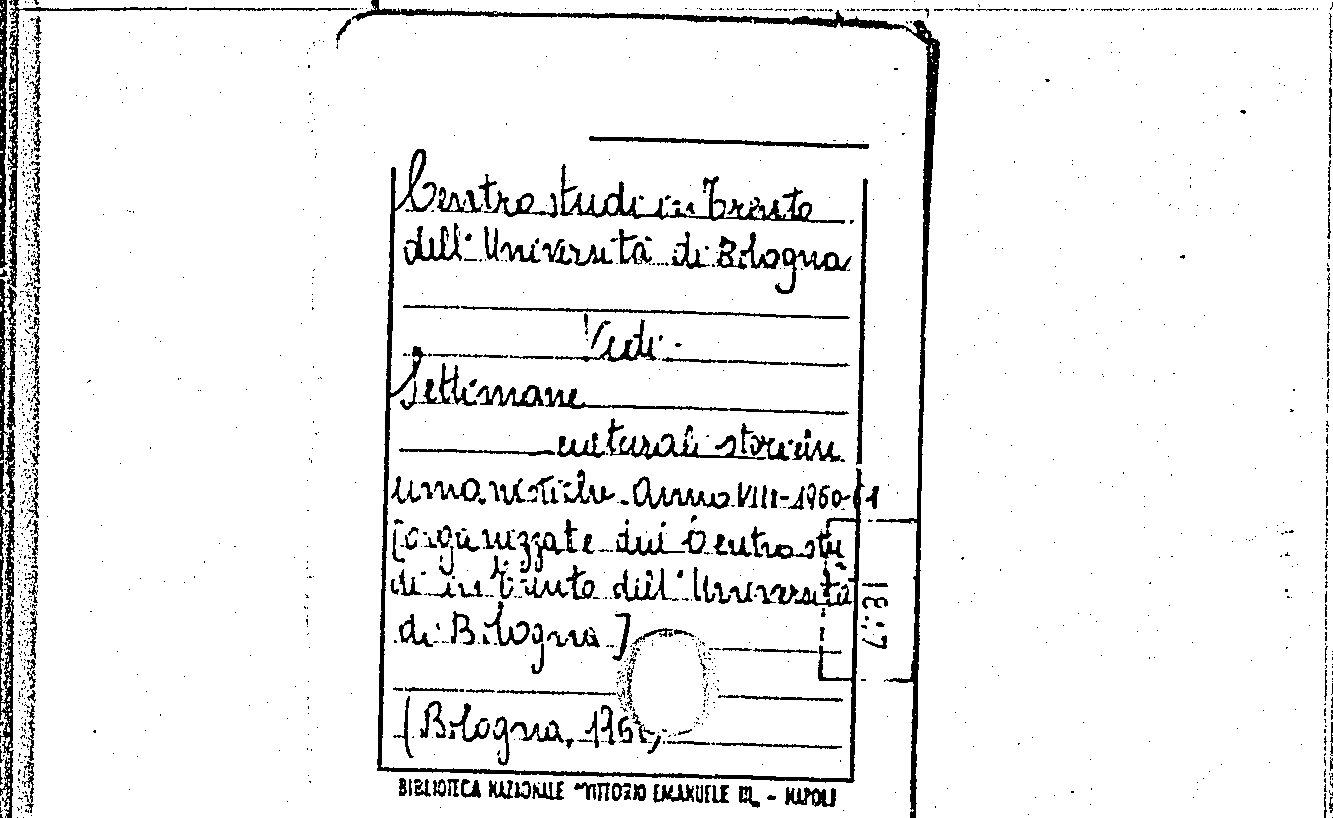 Centro studi in Trento
dell'Università di Bologna
Vedi
Settimane
culturali storico
umanistiche. Anno VIII-1960-61
[organizzate dal Centro stu
di in Trento dell'Università
di Bologna]
(Bologna, 196
BIBLIOTECA NAZIONALE "VITTORIO EMANUELE III" - NAPOLI